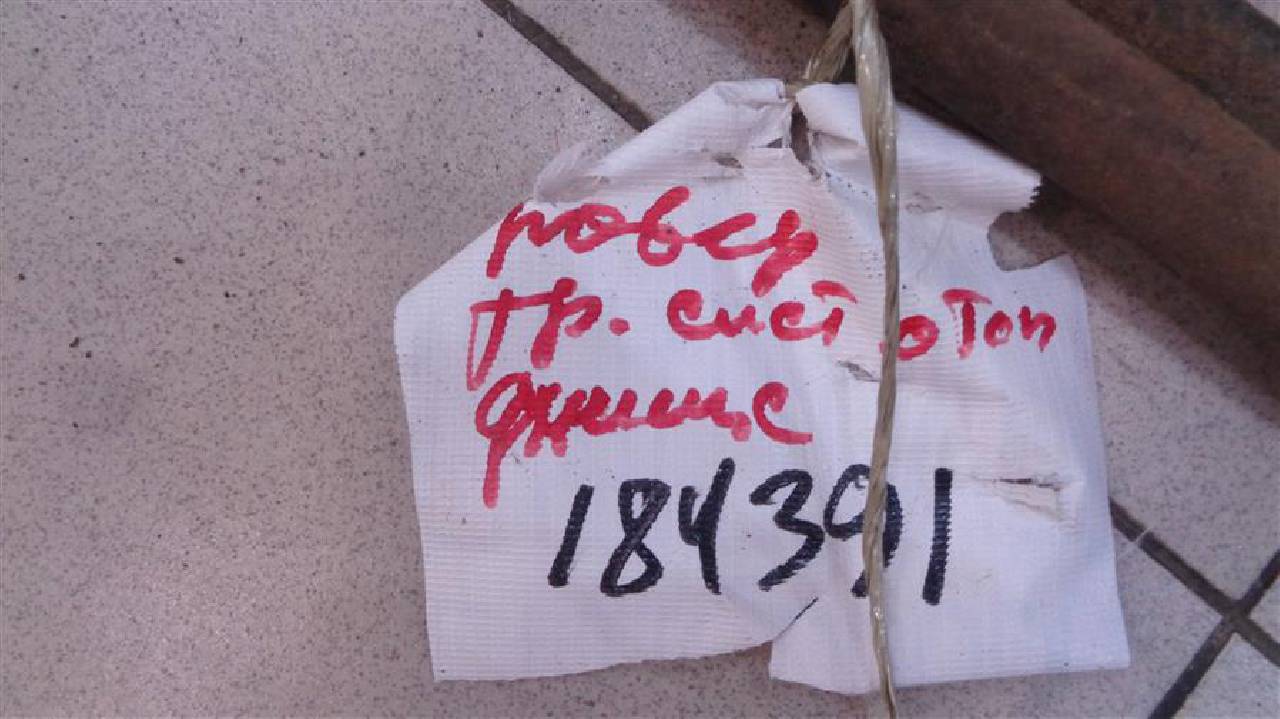 ровер
тр. сист отоп
днище
184391